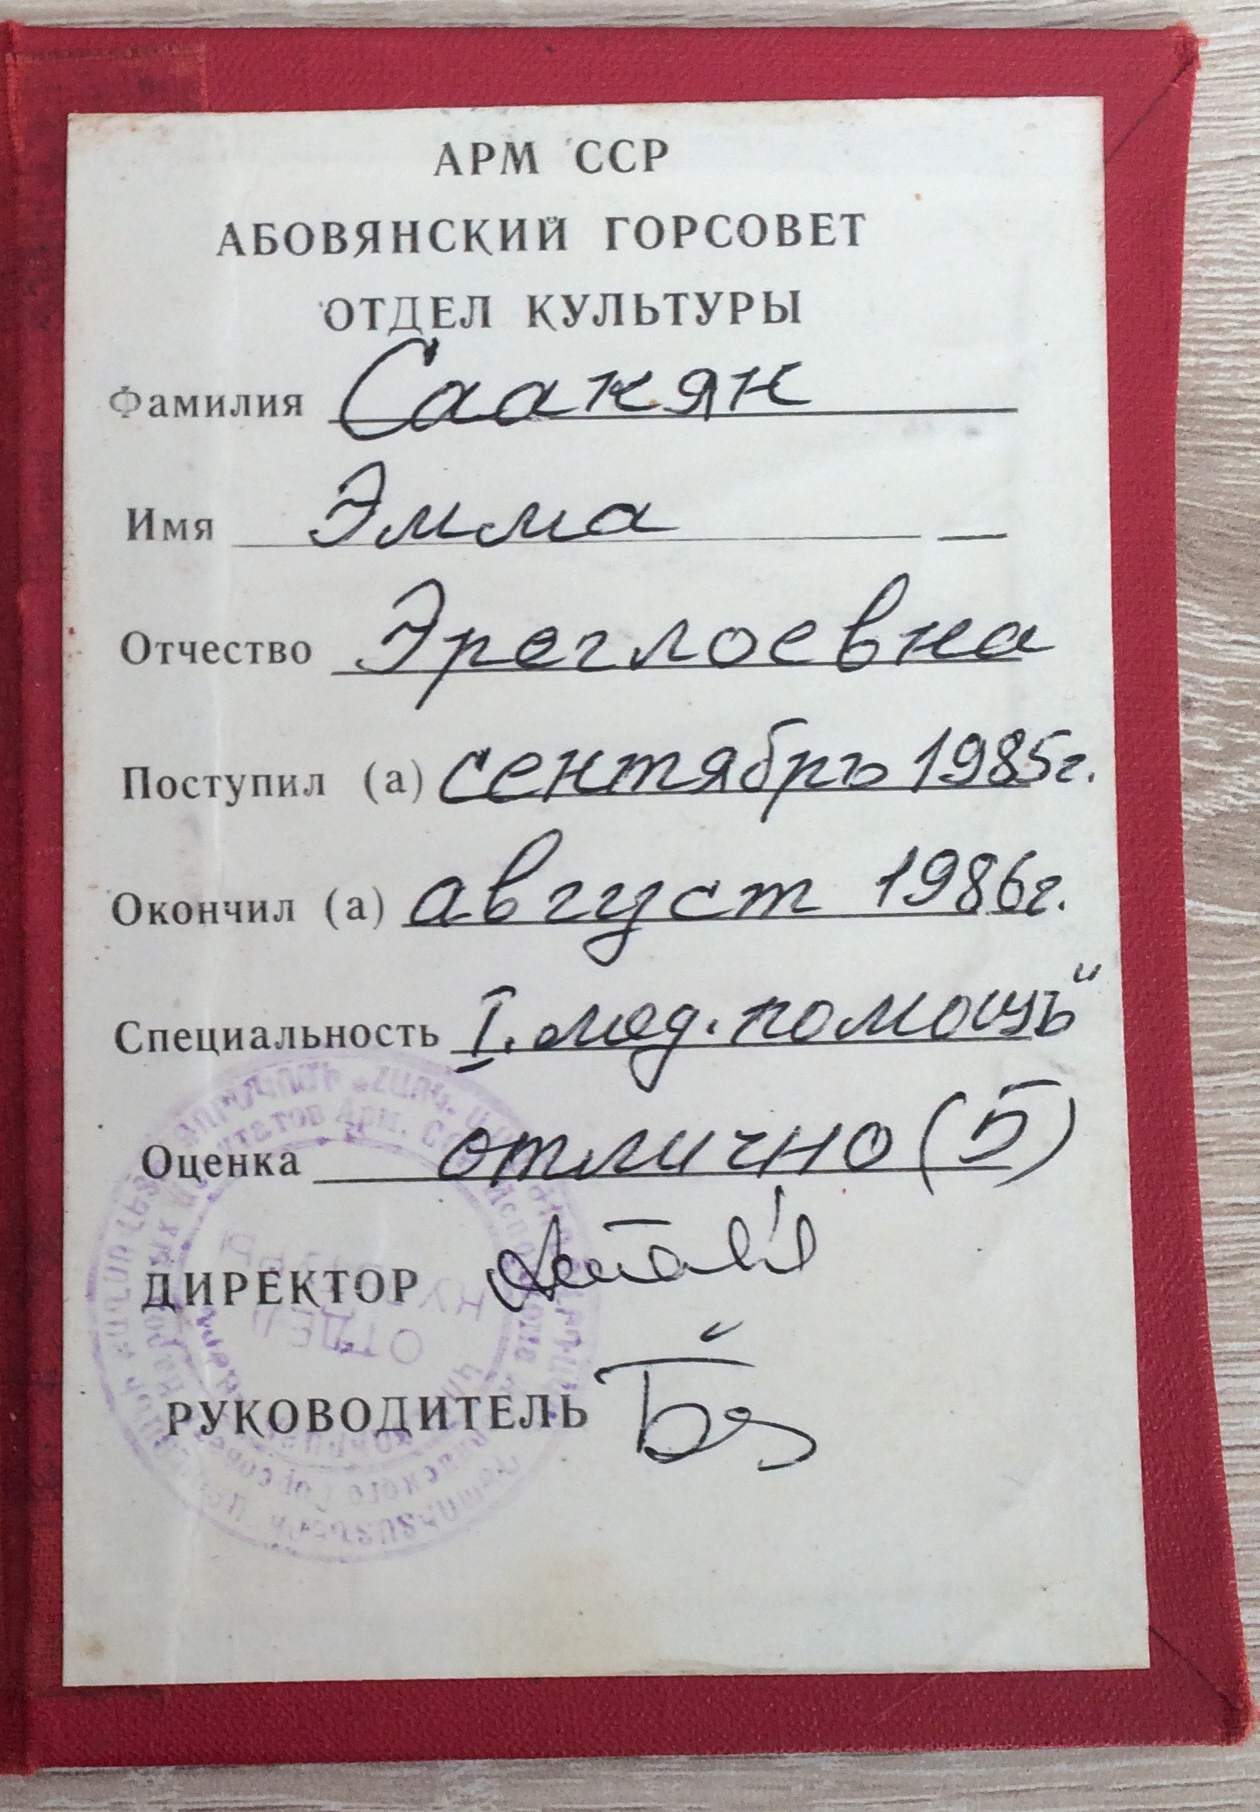 АРМ ССР
АБОВЯНСКИЙ ГОРСОВЕТ
ОТДЕЛ КУЛЬТУРЫ
Фамилия Саакян
Имя Эмма
Отчество Эреглоевна
Поступил (а) сентябрь 1985г.
Окончил (а) август 1986г.
Специальность I. мед. помощь"
Оценка отлично (5)
ДИРЕКТОР
РУКОВОДИТЕЛЬ
ОТДЕЛ